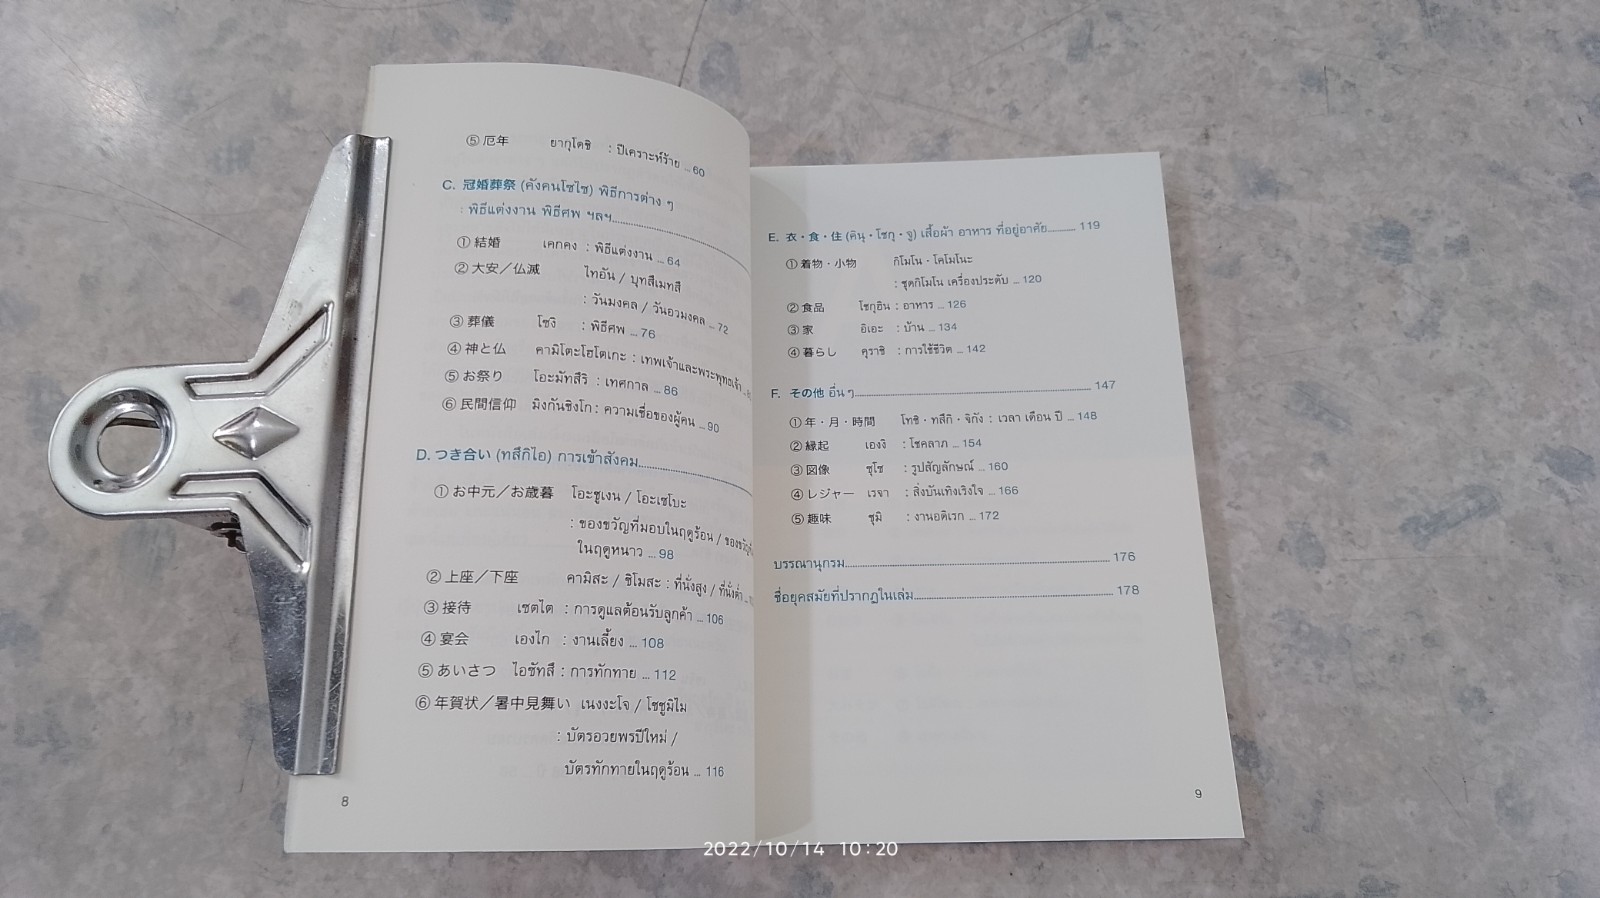 ⑤ 厄年 ยากุโดชิ : ปีเคราะห์ร้าย ... 60
C. 冠婚葬祭 (คังคนโซไซ) พิธีการต่าง ๆ
: พิธีแต่งงาน พิธีศพ ฯลฯ
① 結婚 เคกคง : พิธีแต่งงาน ... 64
② 大安／仏滅 ไทอัน / บุทสึเมทสึ
: วันมงคล / วันอวมงคล ... 72
③ 葬儀 โซงิ : พิธีศพ ... 76
④ 神と仏 คามิโตะโฮโตเกะ : เทพเจ้าและพระพุทธเจ้า
⑤ お祭り โอะมัทสึริ : เทศกาล ... 86
⑥ 民間信仰 มิงกันชิงโก : ความเชื่อของผู้คน ... 90
D. つき合い (ทสึกิไอ) การเข้าสังคม
① お中元／お歳暮 โอะชูเงน / โอะเซโบะ
: ของขวัญที่มอบในฤดูร้อน /
ในฤดูหนาว ... 98
② 上座／下座 คามิสะ / ชิโมสะ : ที่นั่งสูง / ที่นั่งต่ำ
③ 接待 เซตไต : การดูแลต้อนรับลูกค้า ... 106
④ 宴会 เองไก : งานเลี้ยง ... 108
⑤ あいさつ ไอซัทสึ : การทักทาย ... 112
⑥ 年賀状／暑中見舞い เนงงะโจ / โชชูมิไม
: บัตรอวยพรปีใหม่ /
บัตรทักทายในฤดูร้อน ... 116
8
E. 衣・食・住 (คินุ・โชกุ・จู) เสื้อผ้า อาหาร ที่อยู่อาศัย 119
① 着物・小物 กิโมโน・โคโมโนะ
: ชุดกิโมโน เครื่องประดับ ... 120
② 食品 โชกุฮิน : อาหาร ... 126
③ 家 อิเอะ : บ้าน ... 134
④ 暮らし คุราชิ : การใช้ชีวิต ... 142
F. その他 อื่น ๆ 147
① 年・月・時間 โทชิ・ทสึกิ・จิกัง : เวลา เดือน ปี ... 148
② 縁起 เองงิ : โชคลาภ ... 154
③ 図像 ซุโซ : รูปสัญลักษณ์ ... 160
④ レジャー เรจา : สิ่งบันเทิงเริงใจ ... 166
⑤ 趣味 ชุมิ : งานอดิเรก ... 172
บรรณานุกรม 176
ชื่อยุคสมัยที่ปรากฏในเล่ม 178
9
2022/10/14 10:20